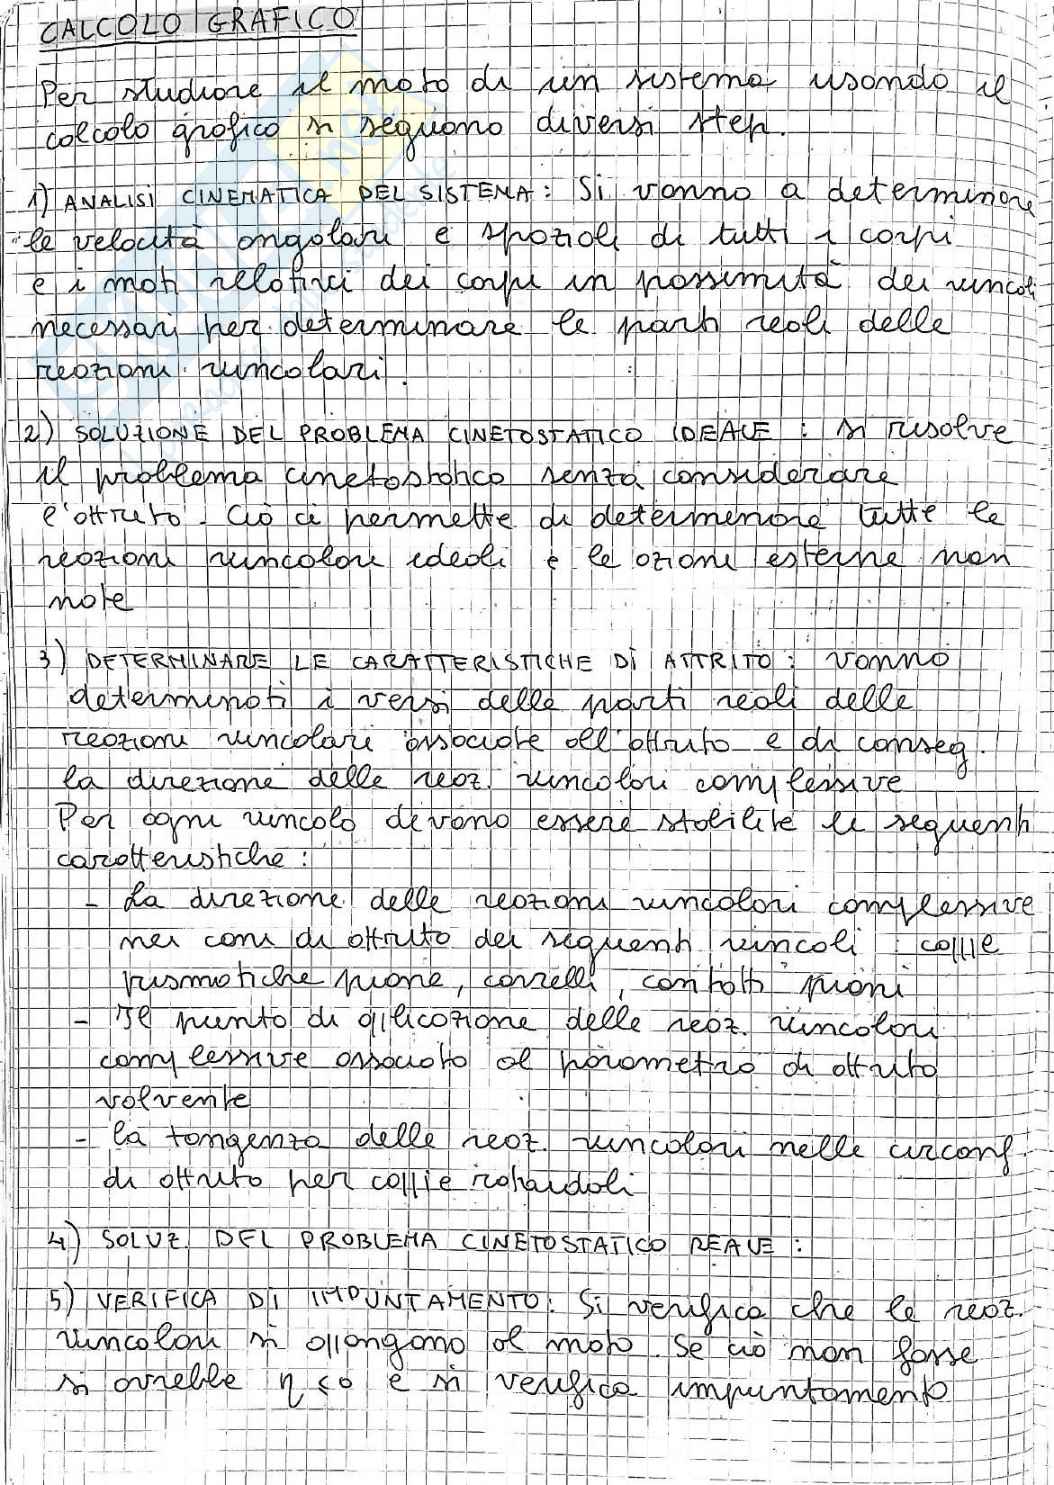 CALCOLO GRAFICO
Per studiare il moto di un sistema usando il
calcolo grafico si seguono diversi step.
1) ANALISI CINEMATICA DEL SISTEMA: Si vanno a determinare
le velocità angolari e spaziali di tutti i corpi
e i moti relativi dei corpi in prossimità dei vincoli
necessari per determinare le parti reali delle
reazioni vincolari.
2) SOLUZIONE DEL PROBLEMA CINETOSTATICO IDEALE: si risolve
il problema cinetostatico senza considerare
l'attrito. Ciò ci permette di determinare tutte le
reazioni vincolari ideali e le azioni esterne non
note
3) DETERMINARE LE CARATTERISTICHE DI ATTRITO: vanno
determinati i versi delle parti reali delle
reazioni vincolari associate all'attrito e di conseg.
la direzione delle reaz. vincolari complessive
Per ogni vincolo devono essere stabilite le seguenti
caratteristiche:
- La direzione delle reazioni vincolari complessive
nei coni di attrito dei seguenti vincoli: coppie
prismatiche piane, carrelli, contatti piani
- Il punto di applicazione delle reaz. vincolari
complessive associato al parametro di attrito
volvente
- la tangenza delle reaz. vincolari nelle circonf.
di attrito per coppie rotoidali
4) SOLUZ. DEL PROBLEMA CINETOSTATICO REALE:
5) VERIFICA DI IMPUNTAMENTO: Si verifica che le reaz.
vincolari si oppongano al moto. Se ciò non fosse
si avrebbe η≤0 e si verifica impuntamento